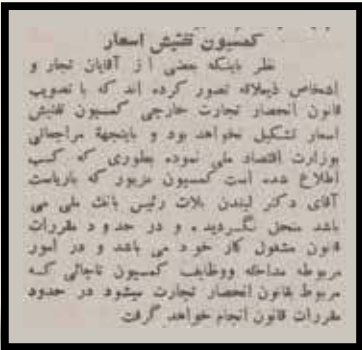 کمسیون تفتیش اسعار
نظر باینکه بعضی از آقایان تجار و
اشخاص ذیعلاقه تصور کرده اند که با تصویب
قانون انحصار تجارت خارجی کمسیون تفتیش
اسعار تشکیل نخواهد بود و باینجهة مراجعاتی
بوزارت اقتصاد ملی نموده بطوری که کسب
اطلاع شده است کمسیون مزبور که بریاست
آقای دکتر لیندن بلات رئیس بانک ملی می
باشد منحل نگردیده و در حدود مقررات
قانون مشغول کار خود می باشد و در امور
مربوطه مداخله ووظایف کمسیون تاجائی که
مربوط بقانون انحصار تجارت میشود در حدود
مقررات قانون انجام خواهد گرفت